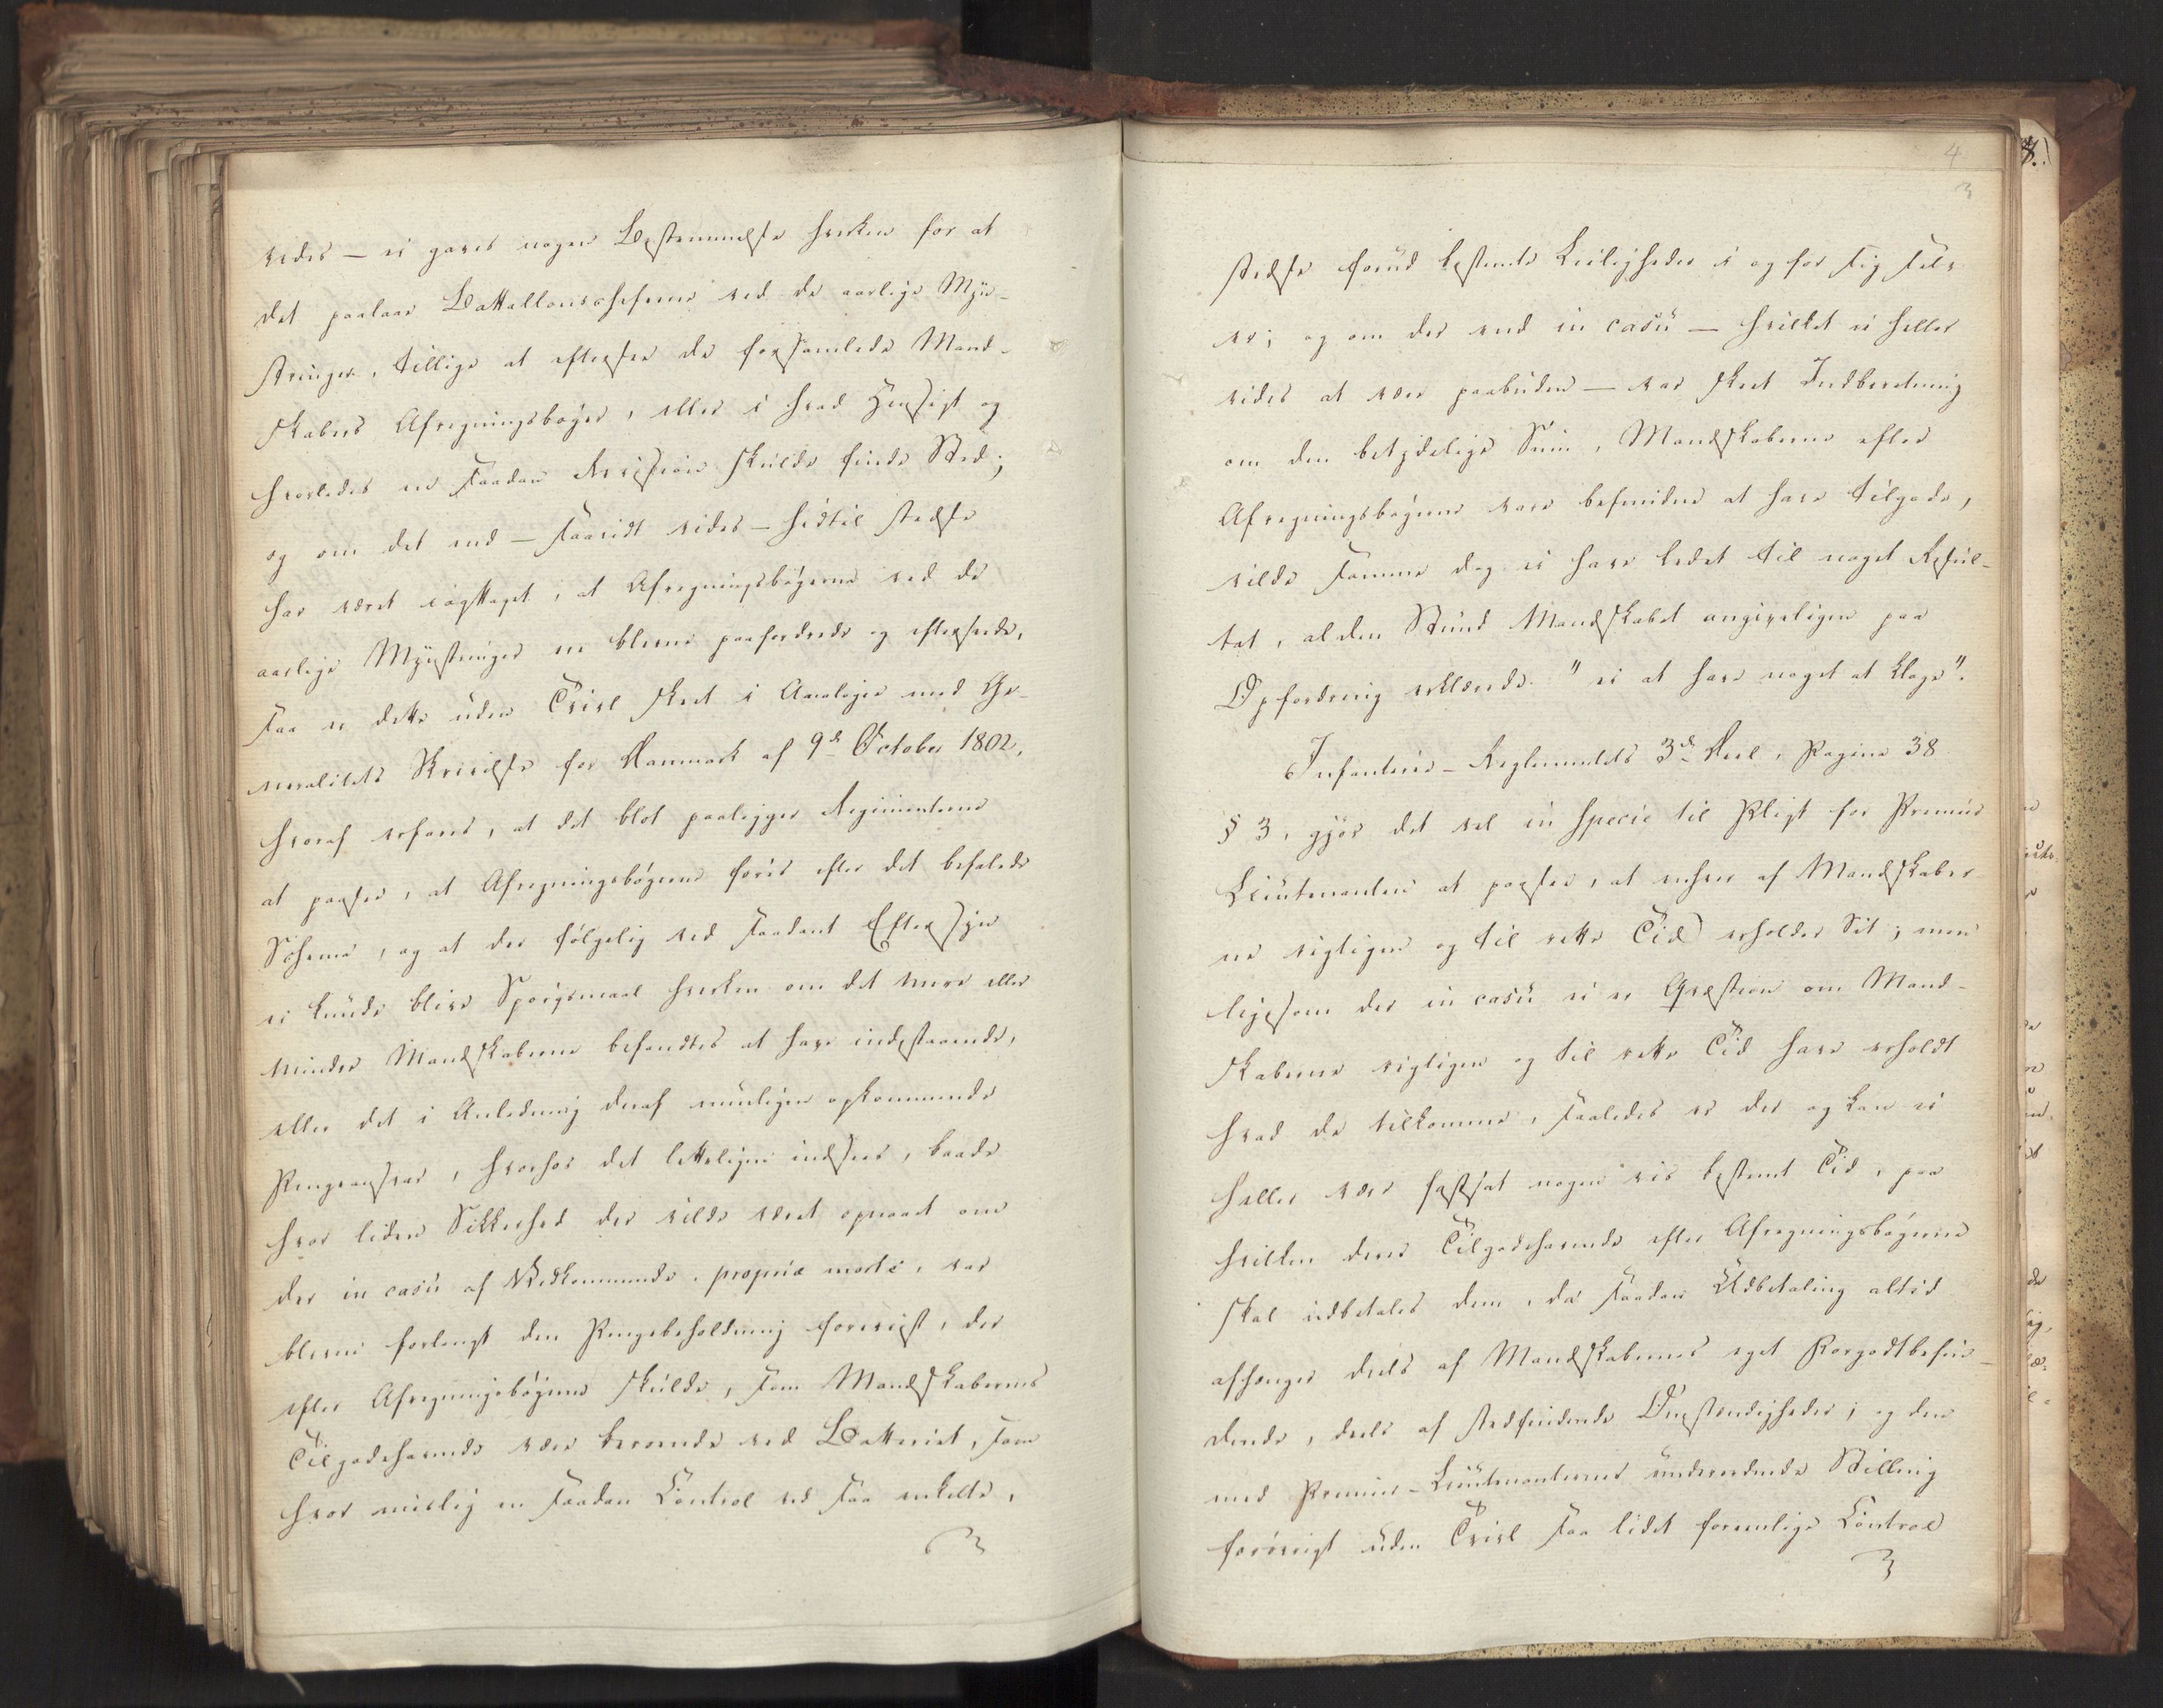 vides — ei gaves nogen Bestemmelse hverken for at
det paalaae Battallonscheferne ved de aarlige Myn-
stringer, tillige at eftersee de forsamlede Mand-
skabers Afregningsbøger, eller i hvad Hensigt og
hvorledes en saadan Revision skulde finde Sted;
og om det end — saavidt vides — hidtil stedse
har været iagttaget, at Afregningsbøgerne ved de
aarlige Mynstringer ere blevne paafordrede og efterseede,
saa er dette uden Tvivl skeet i Analogie med Ge-
neralitets Skrivelse for Danmark af 9de October 1802,
hvoraf erfares, at det blot paaligger Regimenterne
at paasee, at Afregningsbøgerne føres efter det befalede
Schema, og at der følgelig ved saadant Eftersyn
ei kunde blive Spørgsmaal hverken om det mere eller
mindre Mandskaberne befandtes at have indestaaende,
eller det i Anledning deraf mueligen opkommende
Pengeansvar, hvorhos det letteligen indsees, baade
hvor liden Sikkerhed der vilde været opnaaet om
der in casu af Vedkommende, proprio motu, var
bleven forlangt den Pengebeholdning foreviist, der
efter Afregningsbøgerne skulde, som Mandskabernes
Tilgodehavende være beroende ved Batteriet, som
hvor mislig en saadan Control ved saa enkelte,
4
3
stedse forud bestemte Leiligheder i og for sig selv
er; og om der end in casu — hvilket ei heller
vides at være paabuden — var skeet Indberetning
om den betydelige Sum, Mandskaberne efter
Afregningsbøgerne vare befundne at have tilgode,
vilde samme dog ei have ledet til noget Resul-
tat, al den Stund Mandskabet angiveligen paa
Opfordring erklærede "ei at have noget at klage".
Infanterie-Reglementets 3die Deel, Pagina 38
§ 3, gjør det vel in specie til Pligt for Premier
Lieutenanten at paasee, at enhver af Mandskaber-
ne rigtigen og til rette Tid erholder Sit; men
ligesom der in casu ei er Qvæstion om Mand-
skaberne rigtigen og til rette Tid have erholdt
hvad de tilkomme, saaledes er der og kan ei
heller være fastsat nogen vis bestemt Tid, paa
hvilken deres Tilgodehavende efter Afregningsbøgerne
skal udbetales dem, da saadan Udbetaling altid
afhænger deels af Mandskabernes eget Forgodtbefin-
dende, deels af stedfindende Omstændigheder; og den
med Premier-Lieutenanternes underordnede Stilling
forøvrigt uden Tvivl saa lidet foreenlige Control